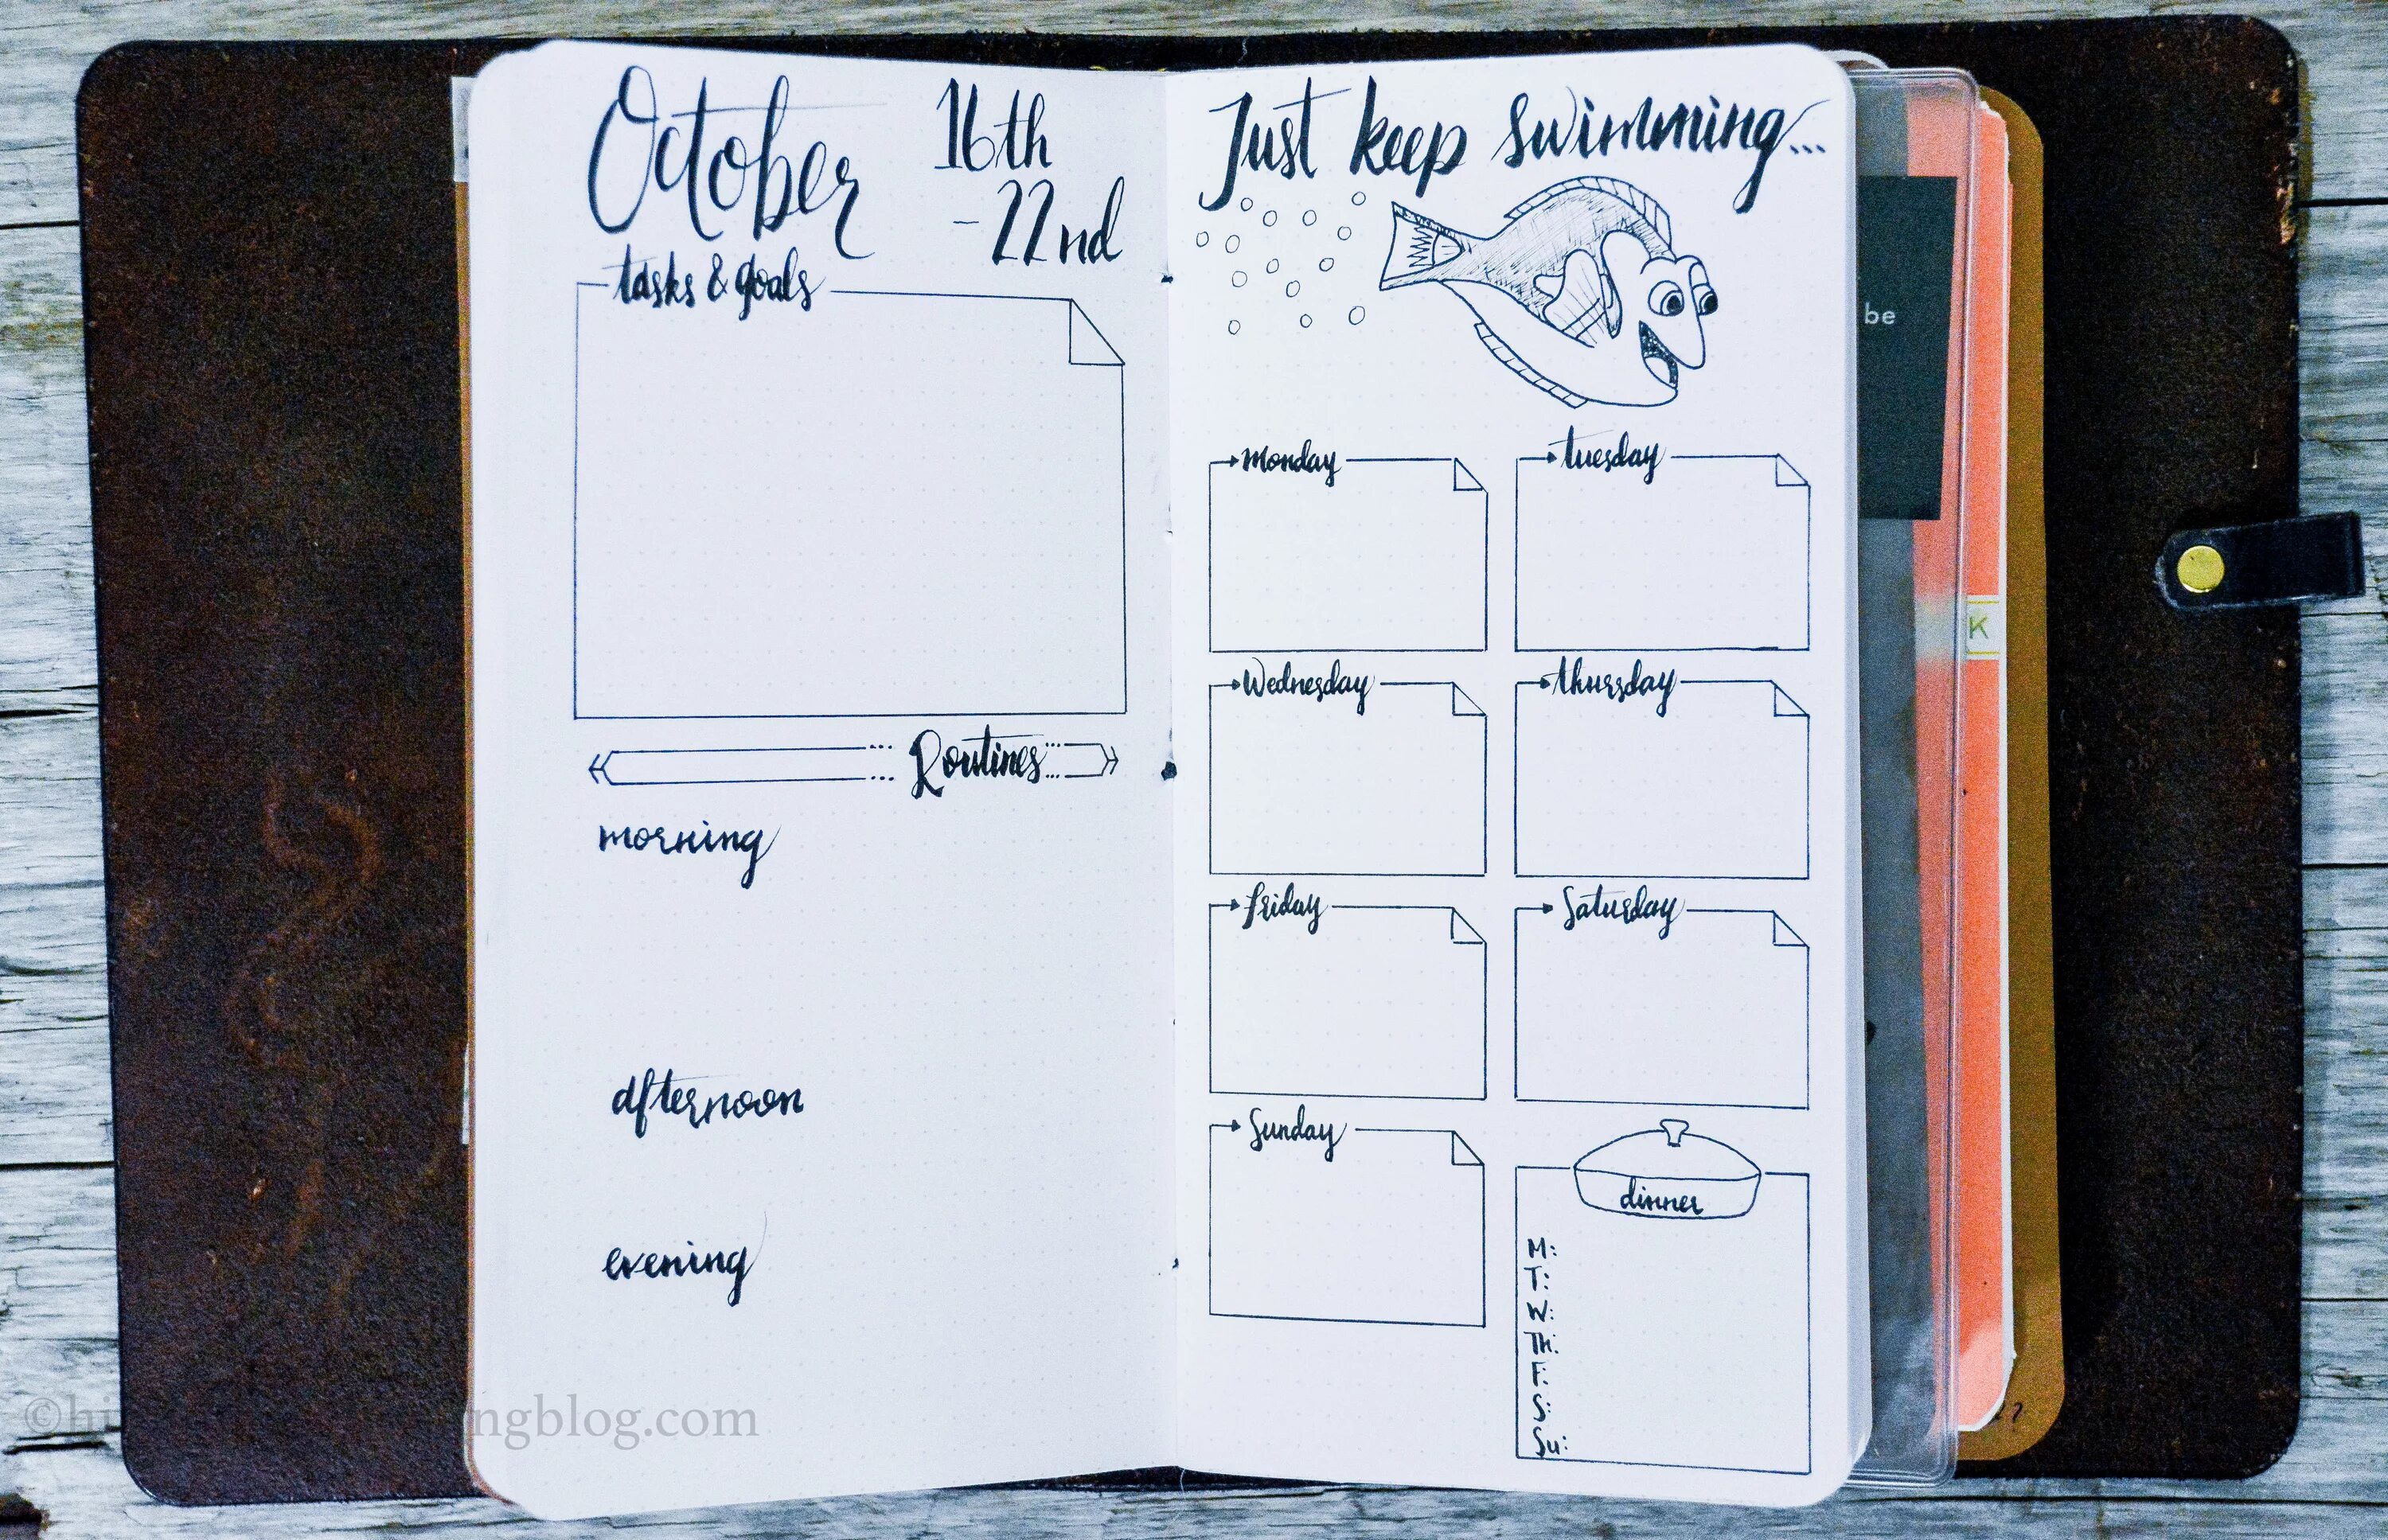 October 16th
-22nd
tasks & goals
Routines
morning
afternoon
evening
Just keep swimming...
monday
tuesday
Wednesday
thursday
friday
Saturday
Sunday
dinner
M:
T:
W:
Th:
F:
S:
Su:
be
K
ngblog.com